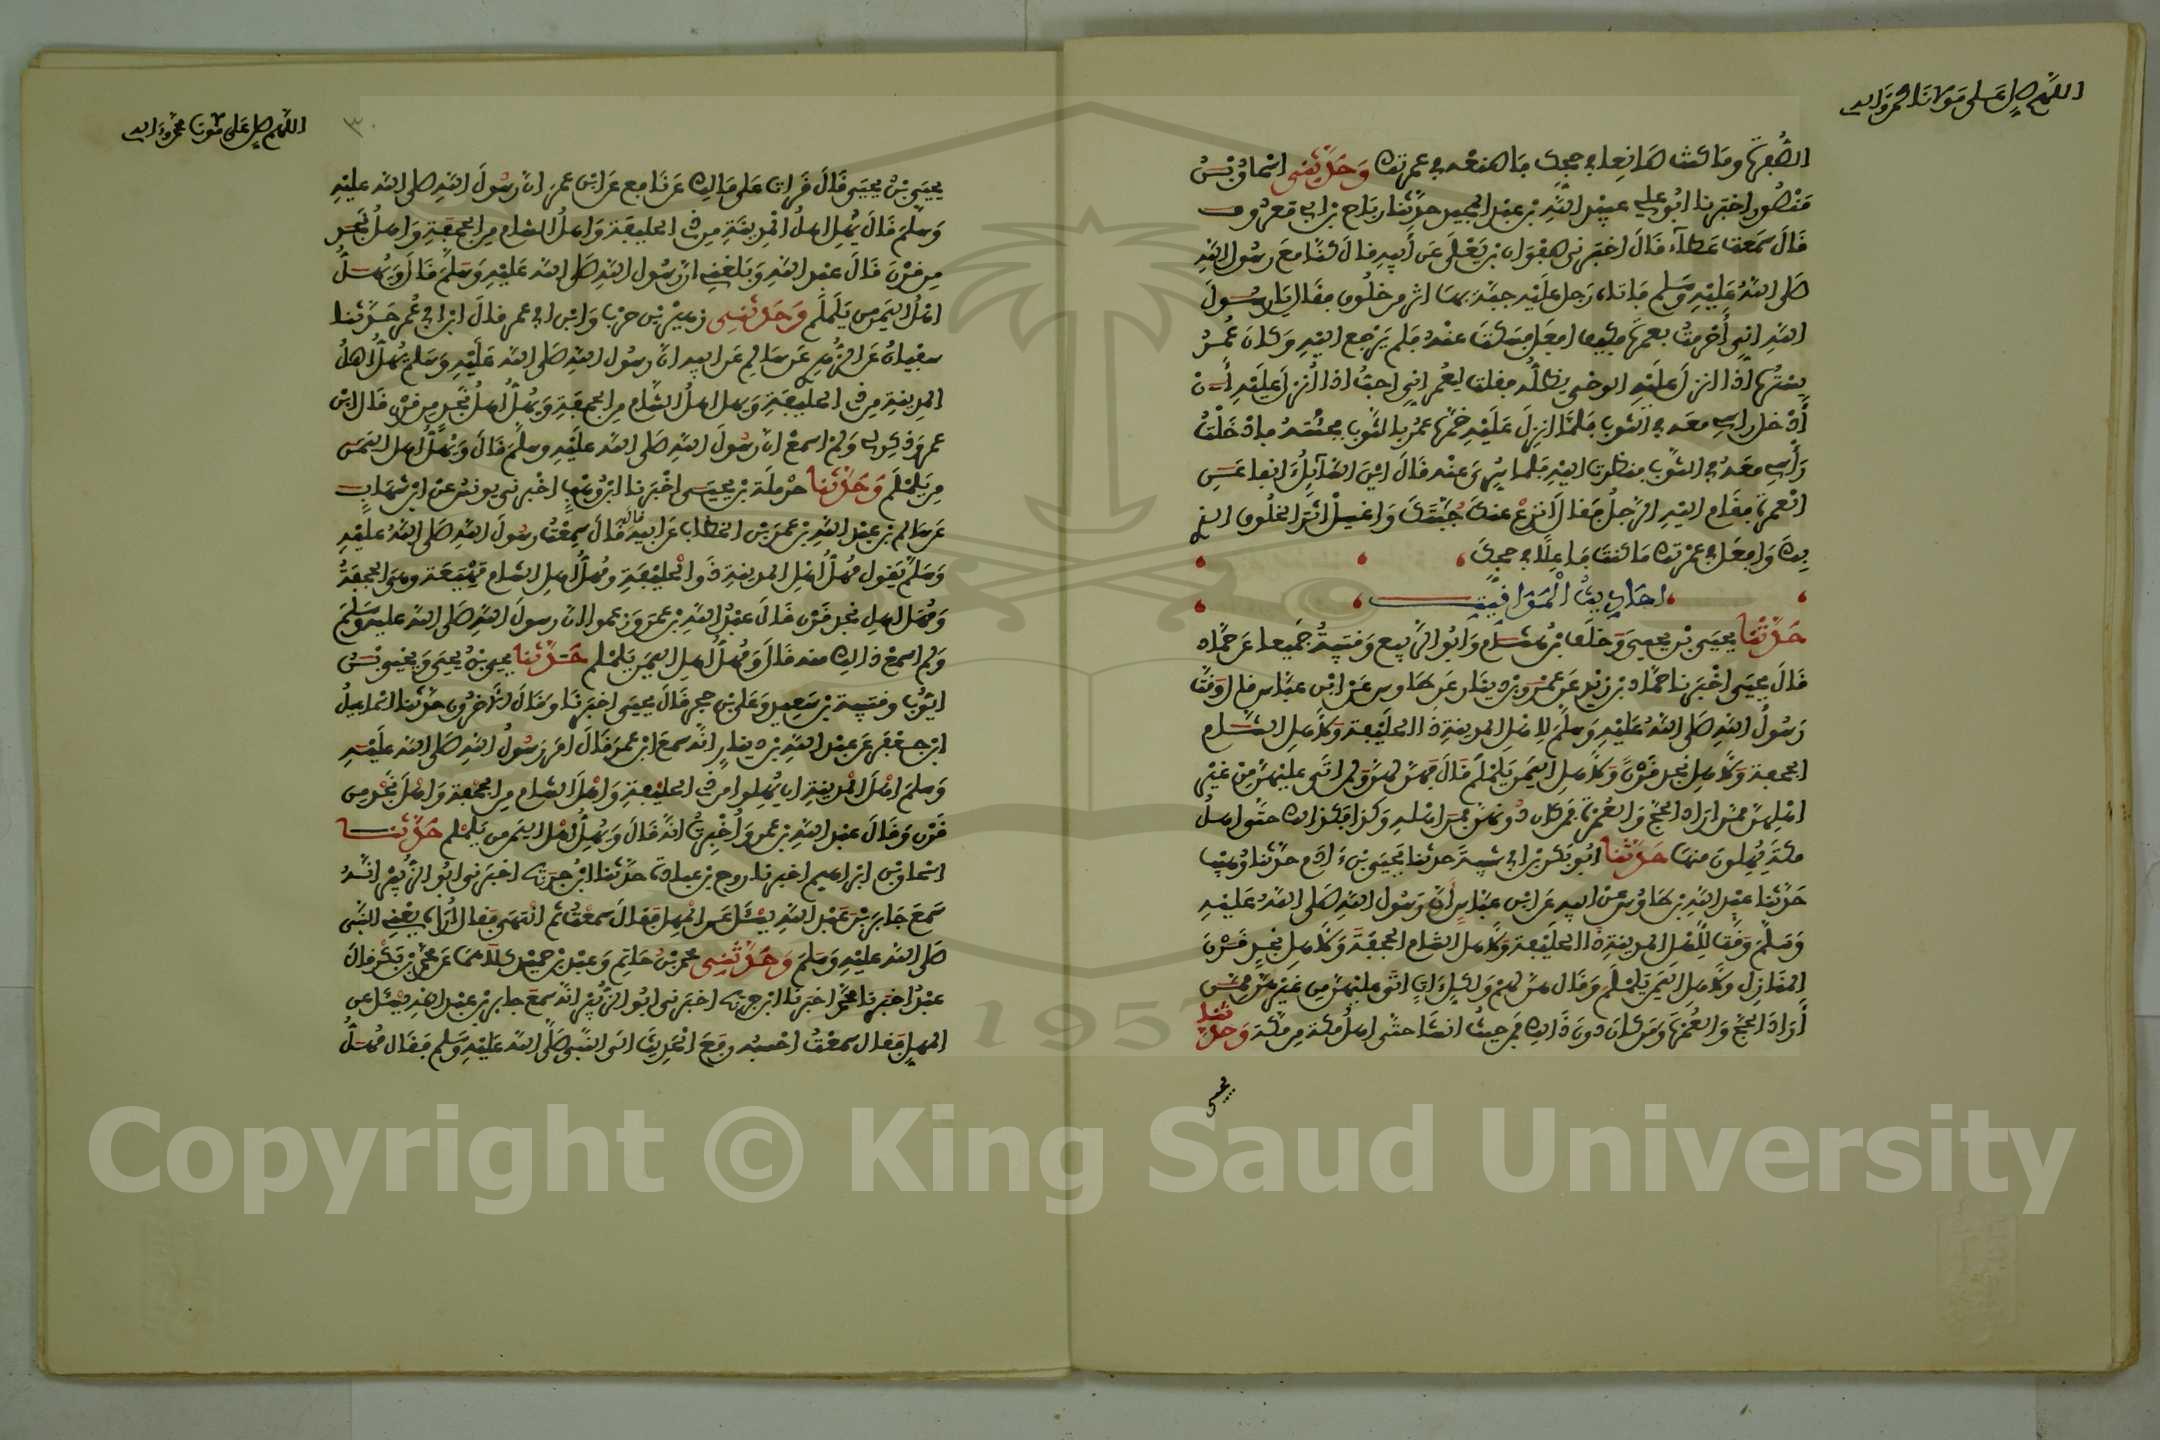 اللهم صل على مولانا محمد وآله
الصفرة وما كنت صانعا في حجك فاصنعه في عمرتك وحدثني إسحاق بن
منصور اخبرنا ابو علي عبيد الله بن عبد المجيد حدثنا رباح بن ابي معروف
قال سمعت عطاء قال اخبرني صفوان بن يعلى عن أبيه قال كنا مع رسول الله
صلى الله عليه وسلم فاتاه رجل عليه جبة بها اثر من خلوق فقال يا رسول
الله اني أحرمت بعمرة فكيف افعل فسكت عنه فلم يرجع اليه وكان عمر
يستره اذا انزل عليه الوحي يظله فقلت لعمر اني احب اذا أنزل عليه أن
أدخل راسي معه في الثوب فلما انزل عليه خمره عمر بالثوب فجئته فادخلت
رأسي معه في الثوب فنظرت اليه فلما سري عنه قال اين السائل انفا عن
العمرة فقام اليه الرجل فقال انزع عنك جبتك واغسل اثر الخلوق الذي
بك وافعل في عمرتك ما كنت فاعلا في حجك
احاديث المواقيت
حدثنا يحيى بن يحيى وخلف بن هشام وابو الربيع وقتيبة جميعا عن حماد
قال يحيى اخبرنا حماد بن زيد عن عمرو بن دينار عن طاوس عن ابن عباس قال وقت
رسول الله صلى الله عليه وسلم لاهل المدينة ذا الحليفة ولاهل الشام
الجحفة ولاهل نجد قرن ولاهل اليمن يلملم قال فهن لهن ولمن اتى عليهن من غير
اهلهن ممن اراد الحج والعمرة فمن كان دونهن فمن اهله وكذا فكذلك حتى اهل
مكة يهلون منها حدثنا ابو بكر بن ابي شيبة حدثنا يحيى بن ءادم حدثنا وهيب
حدثنا عبد الله بن طاوس عن ابيه عن ابن عباس أن رسول الله صلى الله عليه
وسلم وقت لأهل المدينة ذا الحليفة ولاهل الشام الجحفة ولاهل نجد قرن
المنازل ولاهل اليمن يلملم وقال هن لهن ولكل ءات اتى عليهن من غيرهن ممن
أراد الحج والعمرة ومن كان دون ذلك فمن حيث انشا حتى اهل مكة من مكة وحدثنا
يحيى
اللهم صل على مولانا محمد وآله
٣٠
يحيى بن يحيى قال قرات على مالك عن نافع عن ابن عمر ان رسول الله صلى الله عليه
وسلم قال يهل اهل المدينة من ذي الحليفة واهل الشام من الجحفة واهل نجد
من قرن قال عبد الله وبلغني ان رسول الله صلى الله عليه وسلم قال ويهل
اهل اليمن من يلملم وحدثني زهير بن حرب وابن ابي عمر قال ابن ابي عمر حدثنا
سفيان عن الزهري عن سالم عن ابيه ان رسول الله صلى الله عليه وسلم يهل اهل
المدينة من ذي الحليفة ويهل اهل الشام من الجحفة ويهل اهل نجد من قرن قال ابن
عمر وذكر لي ولم اسمع ان رسول الله صلى الله عليه وسلم قال ويهل اهل اليمن
من يلملم وحدثنا حرملة بن يحيى اخبرنا ابن وهب اخبرني يونس عن ابن شهاب
عن سالم بن عبد الله بن عمر بن الخطاب عن ابيه قال سمعت رسول الله صلى الله عليه
وسلم يقول مهل اهل المدينة ذو الحليفة ومهل اهل الشام مهيعة وهي الجحفة
ومهل اهل نجد قرن قال عبد الله بن عمر وزعموا ان رسول الله صلى الله عليه وسلم
ولم اسمع ذلك منه قال ومهل اهل اليمن يلملم حدثنا يحيى بن يحيى ويحيى بن
ايوب وقتيبة بن سعيد وعلي بن حجر قال يحيى اخبرنا وقال الاخرون حدثنا اسماعيل
ابن جعفر عن عبد الله بن دينار انه سمع ابن عمر قال امر رسول الله صلى الله عليه
وسلم اهل المدينة ان يهلوا من ذي الحليفة واهل الشام من الجحفة واهل نجد من
قرن وقال عبد الله بن عمر وأخبرت انه قال ويهل اهل اليمن من يلملم حدثنا
اسحاق بن ابراهيم اخبرنا روح بن عبادة حدثنا ابن جريج اخبرني ابو الزبير انه
سمع جابر بن عبد الله يسئل عن المهل فقال سمعت ثم انتهى فقال أراه يعني النبي
صلى الله عليه وسلم وحدثني محمد بن حاتم وعبد بن حميد كلاهما عن محمد بن بكر قال
عبد اخبرنا محمد اخبرنا ابن جريج اخبرني ابو الزبير انه سمع جابر بن عبد الله يسئل عن
المهل فقال سمعت احسبه رفع الحديث الى النبي صلى الله عليه وسلم فقال مهل
Copyright © King Saud University
1957